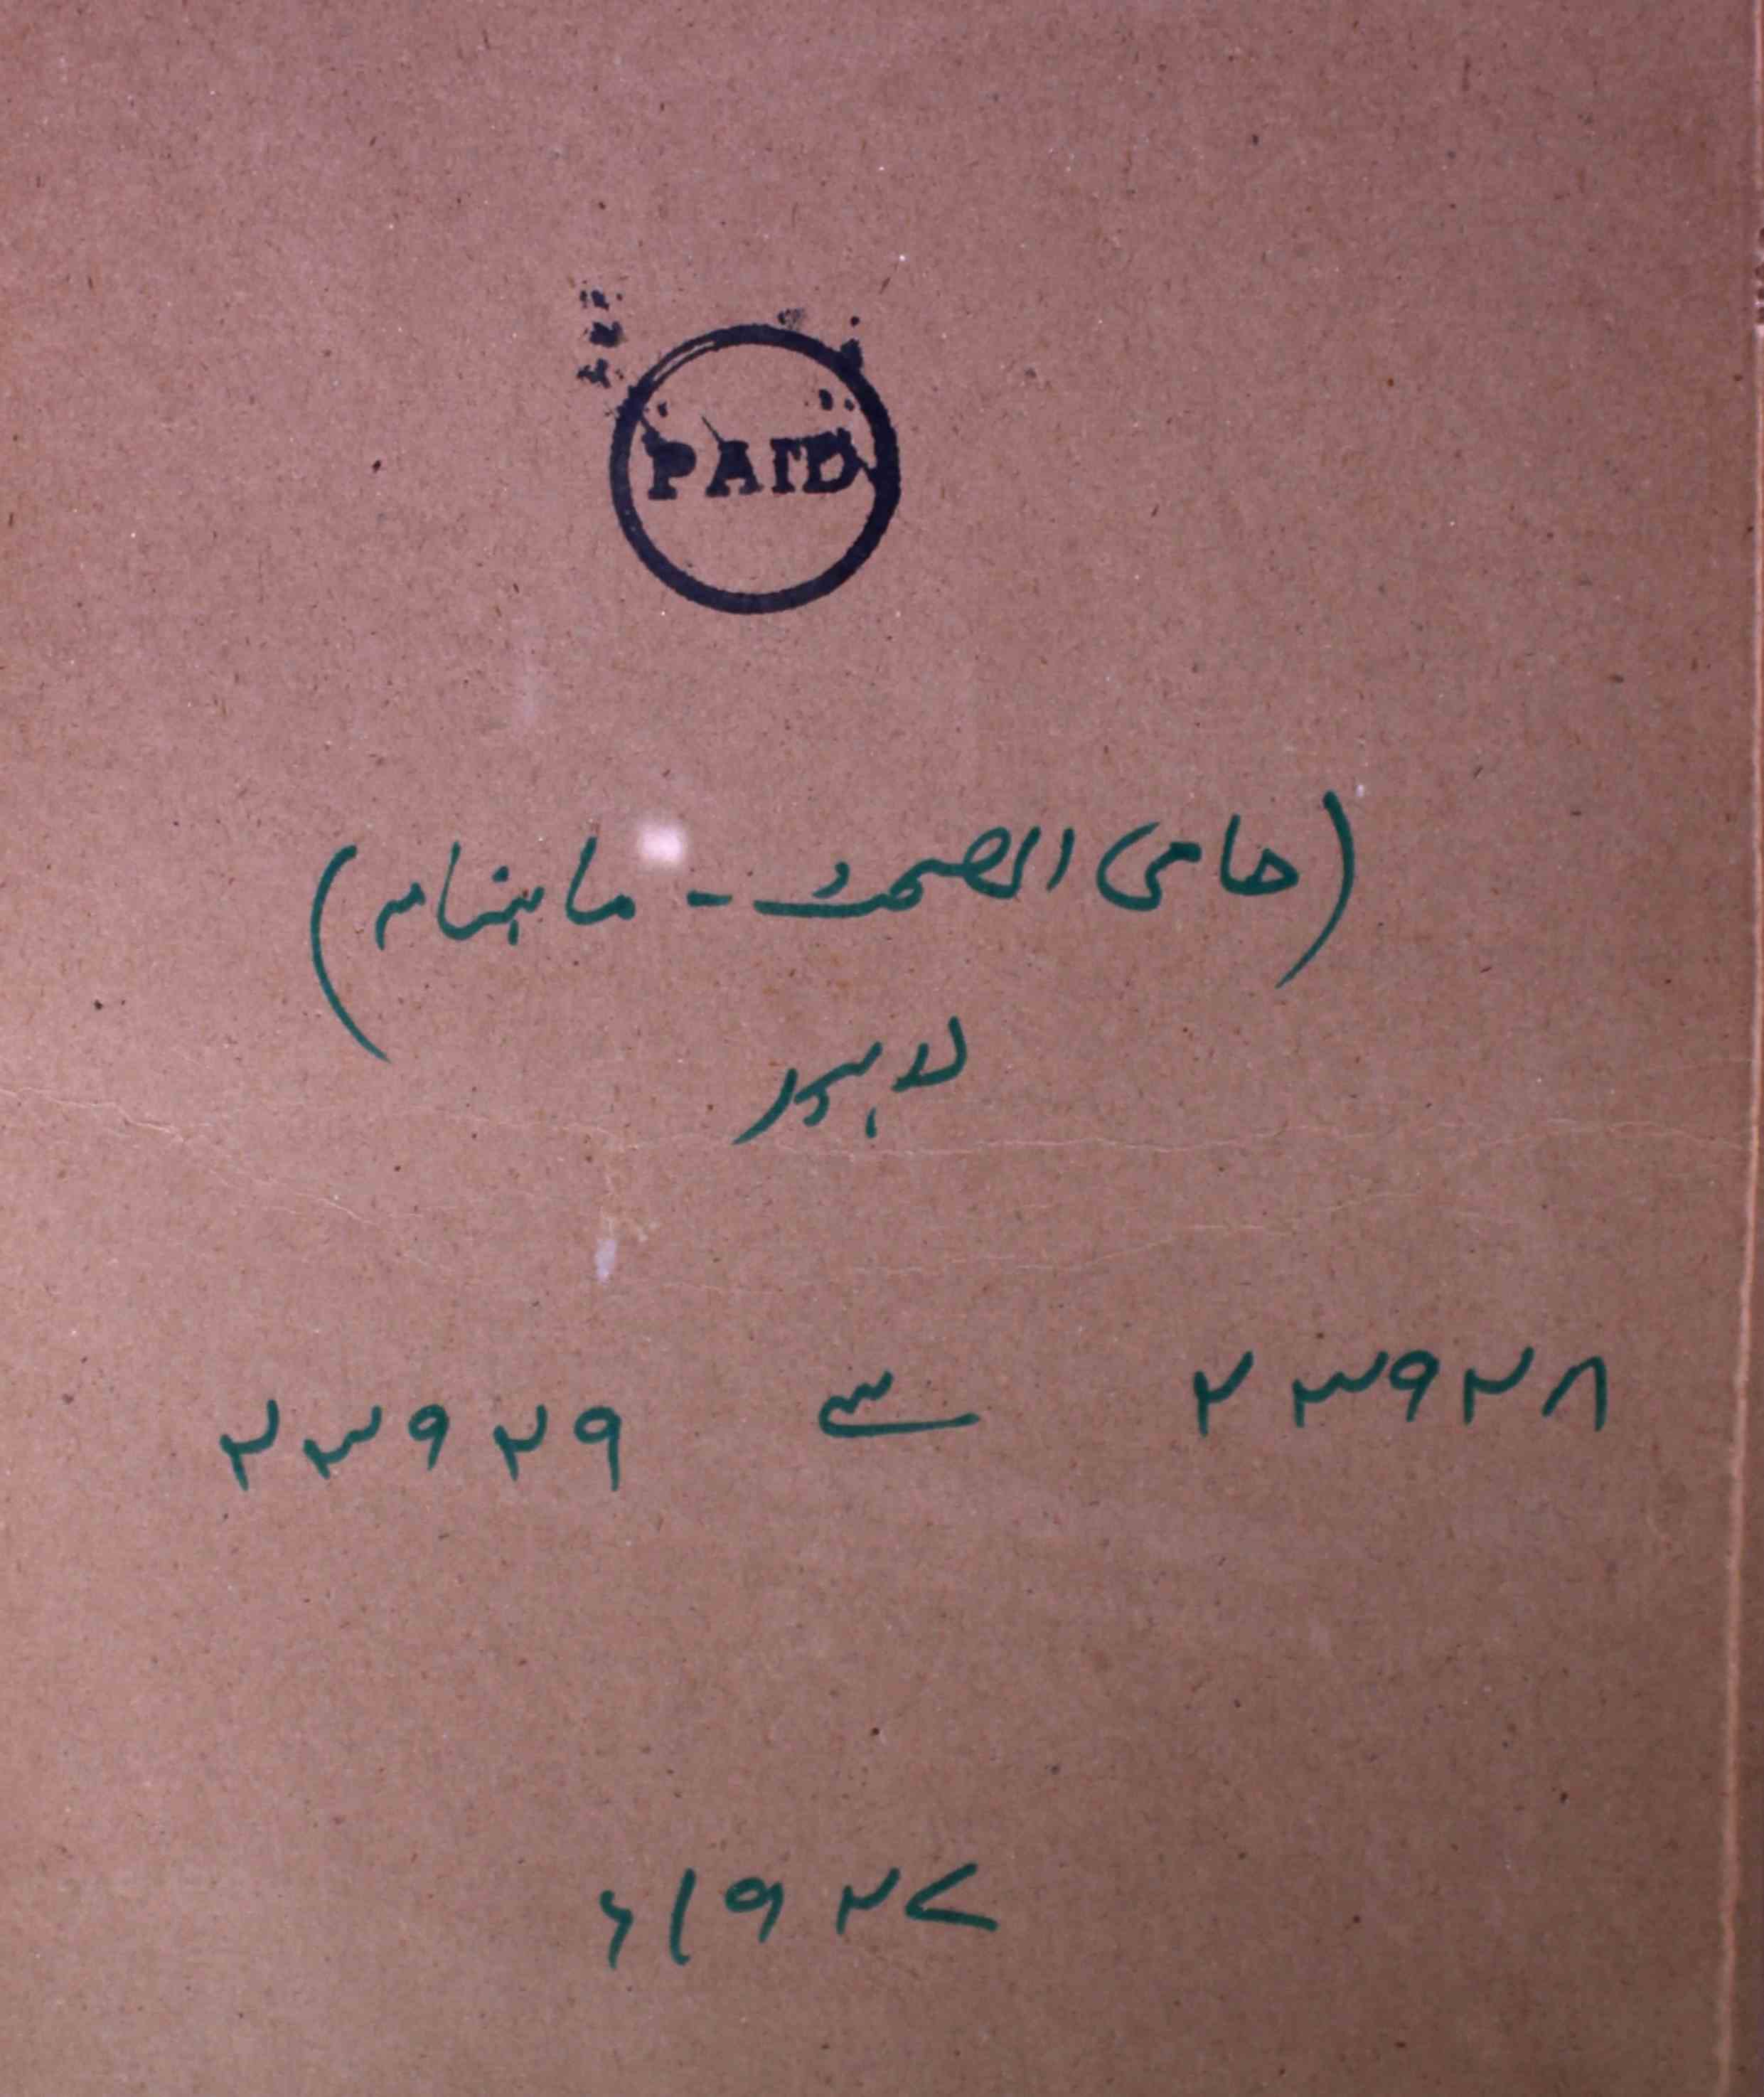 PAID
(حامی الصحت - ماہنامہ)
لاہور
۲۳۹۲۸ سے ۲۳۹۲۹
۱۹۲۷ء